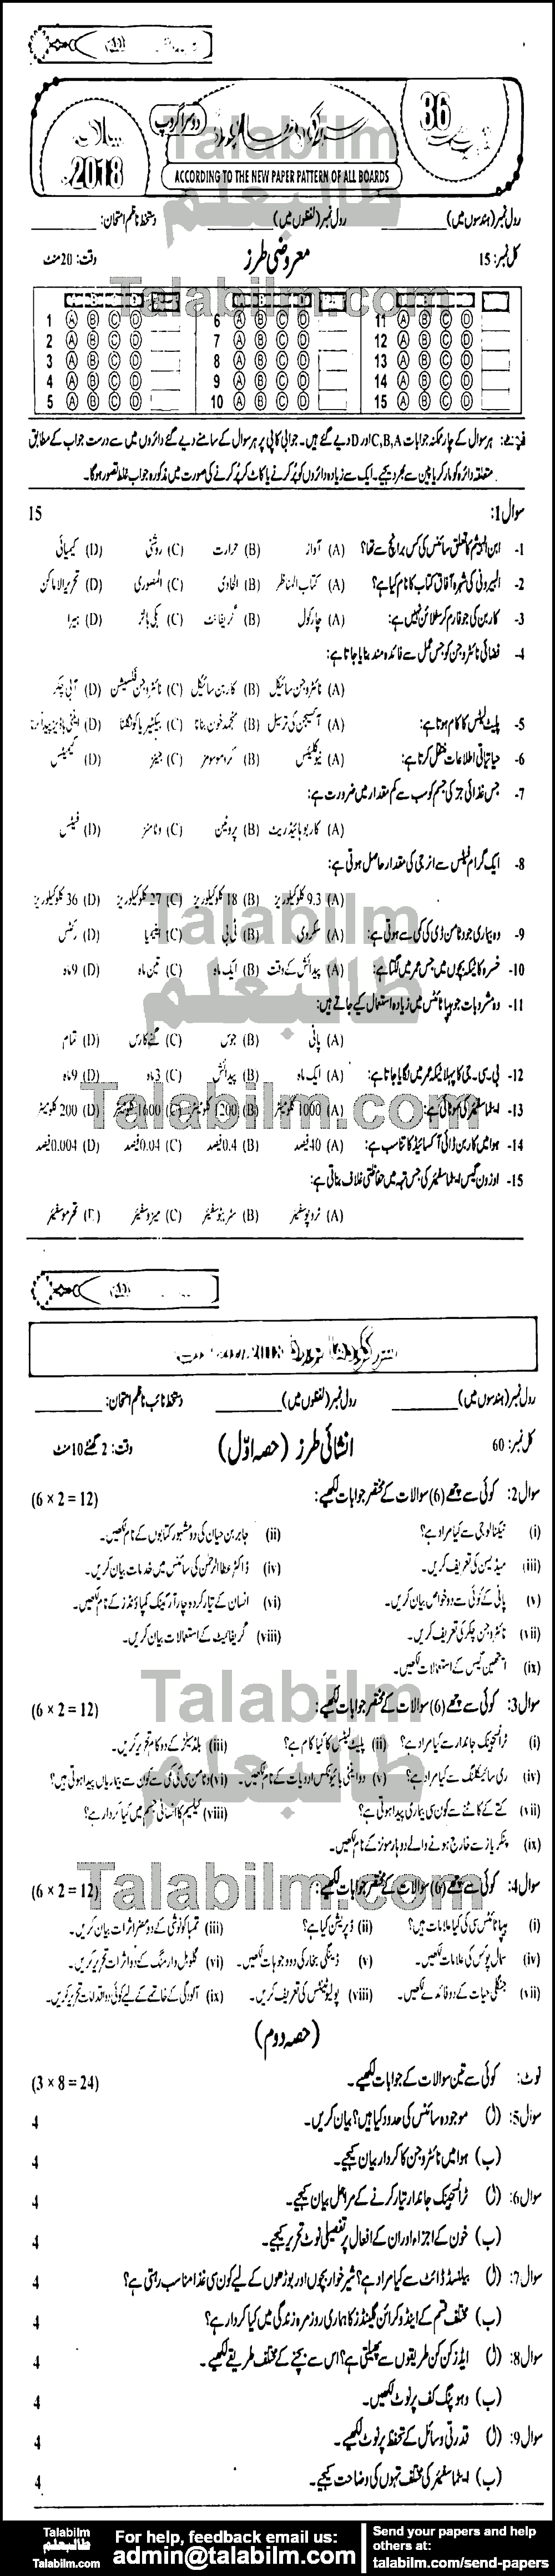 36
دوسرا گروپ
2018
ACCORDING TO THE NEW PAPER PATTERN OF ALL BOARDS
رول نمبر (ہندسوں میں) ________ رول نمبر (لفظوں میں) ________ دستخط ناظم امتحان: ________
کل نمبر: 15 معروضی طرز وقت: 20 منٹ
1 A B C D 6 A B C D 11 A B C D
2 A B C D 7 A B C D 12 A B C D
3 A B C D 8 A B C D 13 A B C D
4 A B C D 9 A B C D 14 A B C D
5 A B C D 10 A B C D 15 A B C D
ہر سوال کے چار ممکنہ جوابات C,B,A اور D دیے گئے ہیں۔ جوابی کاپی پر ہر سوال کے سامنے دیے گئے دائروں میں سے درست جواب کے مطابق
متعلقہ دائرہ کو مارکر یا پین سے بھر دیجیے۔ ایک سے زیادہ دائروں کو پُر کرنے یا کاٹ کر پُر کرنے کی صورت میں مذکورہ جواب غلط تصور ہوگا۔
سوال 1: 15
1- ابن الہیثم کا تعلق سائنس کی کس برانچ سے تھا؟ (A) آواز (B) حرارت (C) روشنی (D) کیمیائی
2- البیرونی کی شہرہ آفاق کتاب کا نام کیا ہے؟ (A) کتاب المناظر (B) الحاوی (C) المنصوری (D) تحریر الاماکن
3- کاربن کی جو فارم کرسٹلائن نہیں ہے: (A) چارکول (B) گریفائٹ (C) بکی بالز (D) ہیرا
4- فضائی نائٹروجن کو جس عمل سے فائدہ مند بنایا جاتا ہے:
(A) نائٹروجن سائیکل (B) کاربن سائیکل (C) نائٹروجن فکسیشن (D) آبی چکر
5- پلیٹ لیٹس کا کام ہوتا ہے: (A) آکسیجن کی ترسیل (B) منجمد خون بنانا (C) بیکٹیریا کو نگلنا (D) اینٹی باڈیز پیدا کرنا
6- حیاتیاتی اطلاعات منتقل کرتا ہے: (A) نیوکلیئس (B) کروموسومز (C) جینز (D) گیمیٹس
7- جس غذائی جز کی جسم کو سب سے کم مقدار میں ضرورت ہے:
(A) کاربوہائیڈریٹ (B) پروٹین (C) وٹامنز (D) فیٹس
8- ایک گرام فیٹس سے انرجی کی مقدار حاصل ہوتی ہے:
(A) 9.3 کلوکیلوریز (B) 18 کلوکیلوریز (C) 27 کلوکیلوریز (D) 36 کلوکیلوریز
9- وہ بیماری جو وٹامن ڈی کی کمی سے ہوتی ہے: (A) سکروی (B) ٹی بی (C) اینیمیا (D) رکٹس
10- خسرہ کا ٹیکہ بچوں میں جس عمر میں لگتا ہے: (A) پیدائش کے وقت (B) ایک ماہ (C) تین ماہ (D) 9 ماہ
11- وہ مشروبات جو ہیپاٹائٹس میں زیادہ استعمال کیے جاتے ہیں:
(A) پانی (B) جوس (C) گنے کا رس (D) تمام
12- بی۔سی۔جی کا پہلا ٹیکہ عمر میں لگایا جاتا ہے: (A) ایک ماہ (B) پیدائش (C) 3 ماہ (D) 9 ماہ
13- ایٹماسفیئر کی موٹائی ہے: (A) 1000 کلومیٹر (B) 1200 کلومیٹر (C) 1600 کلومیٹر (D) 200 کلومیٹر
14- ہوا میں کاربن ڈائی آکسائیڈ کا تناسب ہے: (A) 40 فیصد (B) 0.4 فیصد (C) 0.04 فیصد (D) 0.004 فیصد
15- اوزون گیس ایٹماسفیئر کی جس تہہ میں حفاظتی غلاف بناتی ہے:
(A) ٹروپوسفیئر (B) سٹریٹوسفیئر (C) میزوسفیئر (D) تھرموسفیئر
رول نمبر (ہندسوں میں) ________ رول نمبر (لفظوں میں) ________ دستخط نائب ناظم امتحان: ________
کل نمبر: 60 انشائی طرز (حصہ اوّل) وقت: 2 گھنٹے 10 منٹ
سوال 2: کوئی سے چھے (6) سوالات کے مختصر جوابات لکھیے: (6 × 2 = 12)
(i) ٹیکنالوجی سے کیا مراد ہے؟ (ii) جابر بن حیان کی دو مشہور کتابوں کے نام لکھیں۔
(iii) میڈیسن کی تعریف کریں۔ (iv) ڈاکٹر عطاالرحمٰن کی سائنس میں خدمات بیان کریں۔
(v) پانی کے کوئی سے دو خواص بیان کریں۔ (vi) انسان کے تیار کردہ چار آرگینک کمپاؤنڈز کے نام لکھیں۔
(vii) نائٹروجن چکر کی تعریف کریں۔ (viii) گریفائیٹ کے استعمالات بیان کریں۔
(ix) ایتھین گیس کے استعمالات لکھیں۔
سوال 3: کوئی سے چھے (6) سوالات کے مختصر جوابات لکھیے: (6 × 2 = 12)
(i) ٹرانسجینک جاندار سے کیا مراد ہے؟ (ii) پلیٹ لیٹس کا کیا کام ہے؟ (iii) بلڈ سیلز کے دو کام تحریر کریں۔
(iv) ری سائیکلنگ سے کیا مراد ہے؟ (v) دو اینٹی بائیوٹکس ادویات کے نام لکھیں۔ (vi) وٹامن سی کی کمی سے کون سی بیماریاں پیدا ہوتی ہیں؟
(vii) کتے کے کاٹنے سے کون سی بیماری پیدا ہوتی ہے؟ (viii) کیلسیم کا انسانی جسم میں کیا کردار ہے؟
(ix) پنکریاز سے خارج ہونے والے دو ہارمونز کے نام لکھیں۔
سوال 4: کوئی سے چھے (6) سوالات کے مختصر جوابات لکھیے: (6 × 2 = 12)
(i) ہیپاٹائٹس سی کی کیا علامات ہیں؟ (ii) ڈپریشن کیا ہے؟ (iii) تمباکو نوشی کے دو مضر اثرات بیان کریں۔
(iv) سمال پوکس کی علامات لکھیں۔ (v) ڈینگی بخار کی دو وجوہات لکھیں۔ (vi) گلوبل وارمنگ کے دو اثرات تحریر کریں۔
(vii) جنگلی حیات کے دو فائدے لکھیں۔ (viii) پولیوٹینٹس کی تعریف کریں۔ (ix) آلودگی کے خاتمے کے لیے کوئی دو اقدامات تحریر کریں۔
(حصہ دوم)
نوٹ: کوئی سے تین سوالات کے جوابات لکھیے۔ (3 × 8 = 24)
سوال 5: (ا) موجودہ سائنس کی حدود کیا ہیں؟ بیان کریں۔ 4
(ب) ہوا میں نائٹروجن کا کردار بیان کیجیے۔ 4
سوال 6: (ا) ٹرانسجینک جاندار تیار کرنے کے مراحل بیان کیجیے۔ 4
(ب) خون کے اجزاء اور ان کے افعال پر تفصیلی نوٹ تحریر کیجیے۔ 4
سوال 7: (ا) بیلنسڈ ڈائٹ سے کیا مراد ہے؟ شیر خوار بچوں اور بوڑھوں کے لیے کون سی غذا مناسب رہتی ہے؟ 4
(ب) مختلف قسم کے اینڈوکرائن گلینڈز کا ہماری روزمرہ زندگی میں کیا کردار ہے؟ 4
سوال 8: (ا) ایڈز کن کن طریقوں سے پھیلتی ہے؟ اس سے بچنے کے مختلف طریقے لکھیے۔ 4
(ب) وہوپنگ کف پر نوٹ لکھیں۔ 4
سوال 9: (ا) قدرتی وسائل کے تحفظ پر نوٹ لکھیے۔ 4
(ب) ایٹماسفیئر کی مختلف تہوں کی وضاحت کیجیے۔ 4
Talabilm
طالبعلم
Talabilm.com
For help, feedback email us:
admin@talabilm.com
Send your papers and help others at:
talabilm.com/send-papers